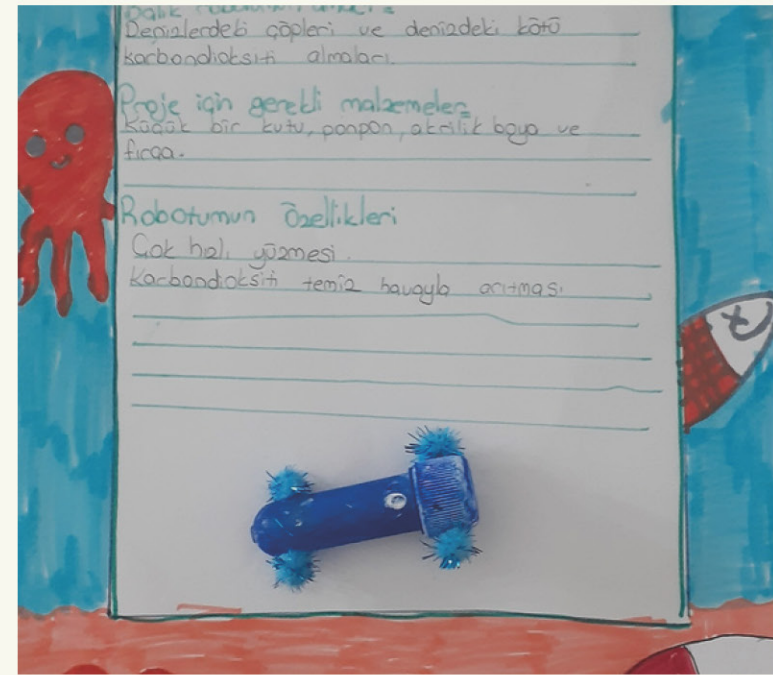 Balık robotumun amacı:
Denizlerdeki çöpleri ve denizdeki kötü
karbondioksiti almaları.
Proje için gerekli malzemeler:
Küçük bir kutu, ponpon, akrilik boya ve
fırça.
Robotumun Özellikleri
Çok hızlı yüzmesi.
Karbondioksiti temiz havayla arıtması